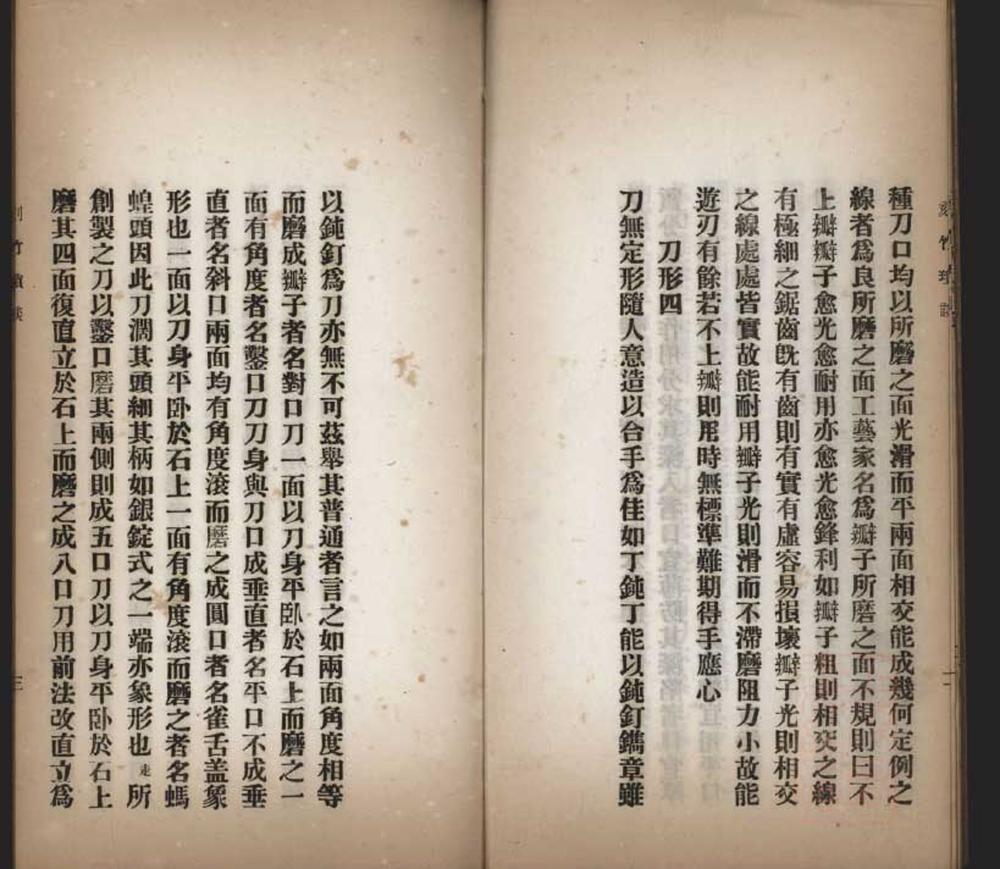 種刀口均以所磨之面光滑而平兩面相交能成幾何定例之
線者爲良所磨之面工藝家名爲瓣子所磨之面不規則曰不
上瓣瓣子愈光愈耐用亦愈光愈鋒利如瓣子粗則相交之線
有極細之鋸齒旣有齒則有實有虛容易損壞瓣子光則相交
之線處處皆實故能耐用瓣子光則滑而不滯磨阻力小故能
遊刃有餘若不上瓣則用時無標準難期得手應心
刀形四
刀無定形隨人意造以合手爲佳如丁鈍丁能以鈍釘鐫章雖
以鈍釘爲刀亦無不可茲舉其普通者言之如兩面角度相等
而磨成瓣子者名對口刀一面以刀身平臥於石上而磨之一
面有角度者名鑿口刀刀身與刀口成垂直者名平口不成垂
直者名斜口兩面均有角度滾而磨之成圓口者名雀舌盖象
形也一面以刀身平卧於石上一面有角度滾而磨之者名螞
蝗頭因此刀濶其頭細其柄如銀錠式之一端亦象形也走所
創製之刀以鑿口磨其兩側則成五口刀以刀身平卧於石上
磨其四面復直立於石上而磨之成八口刀用前法改直立爲
刻竹
三